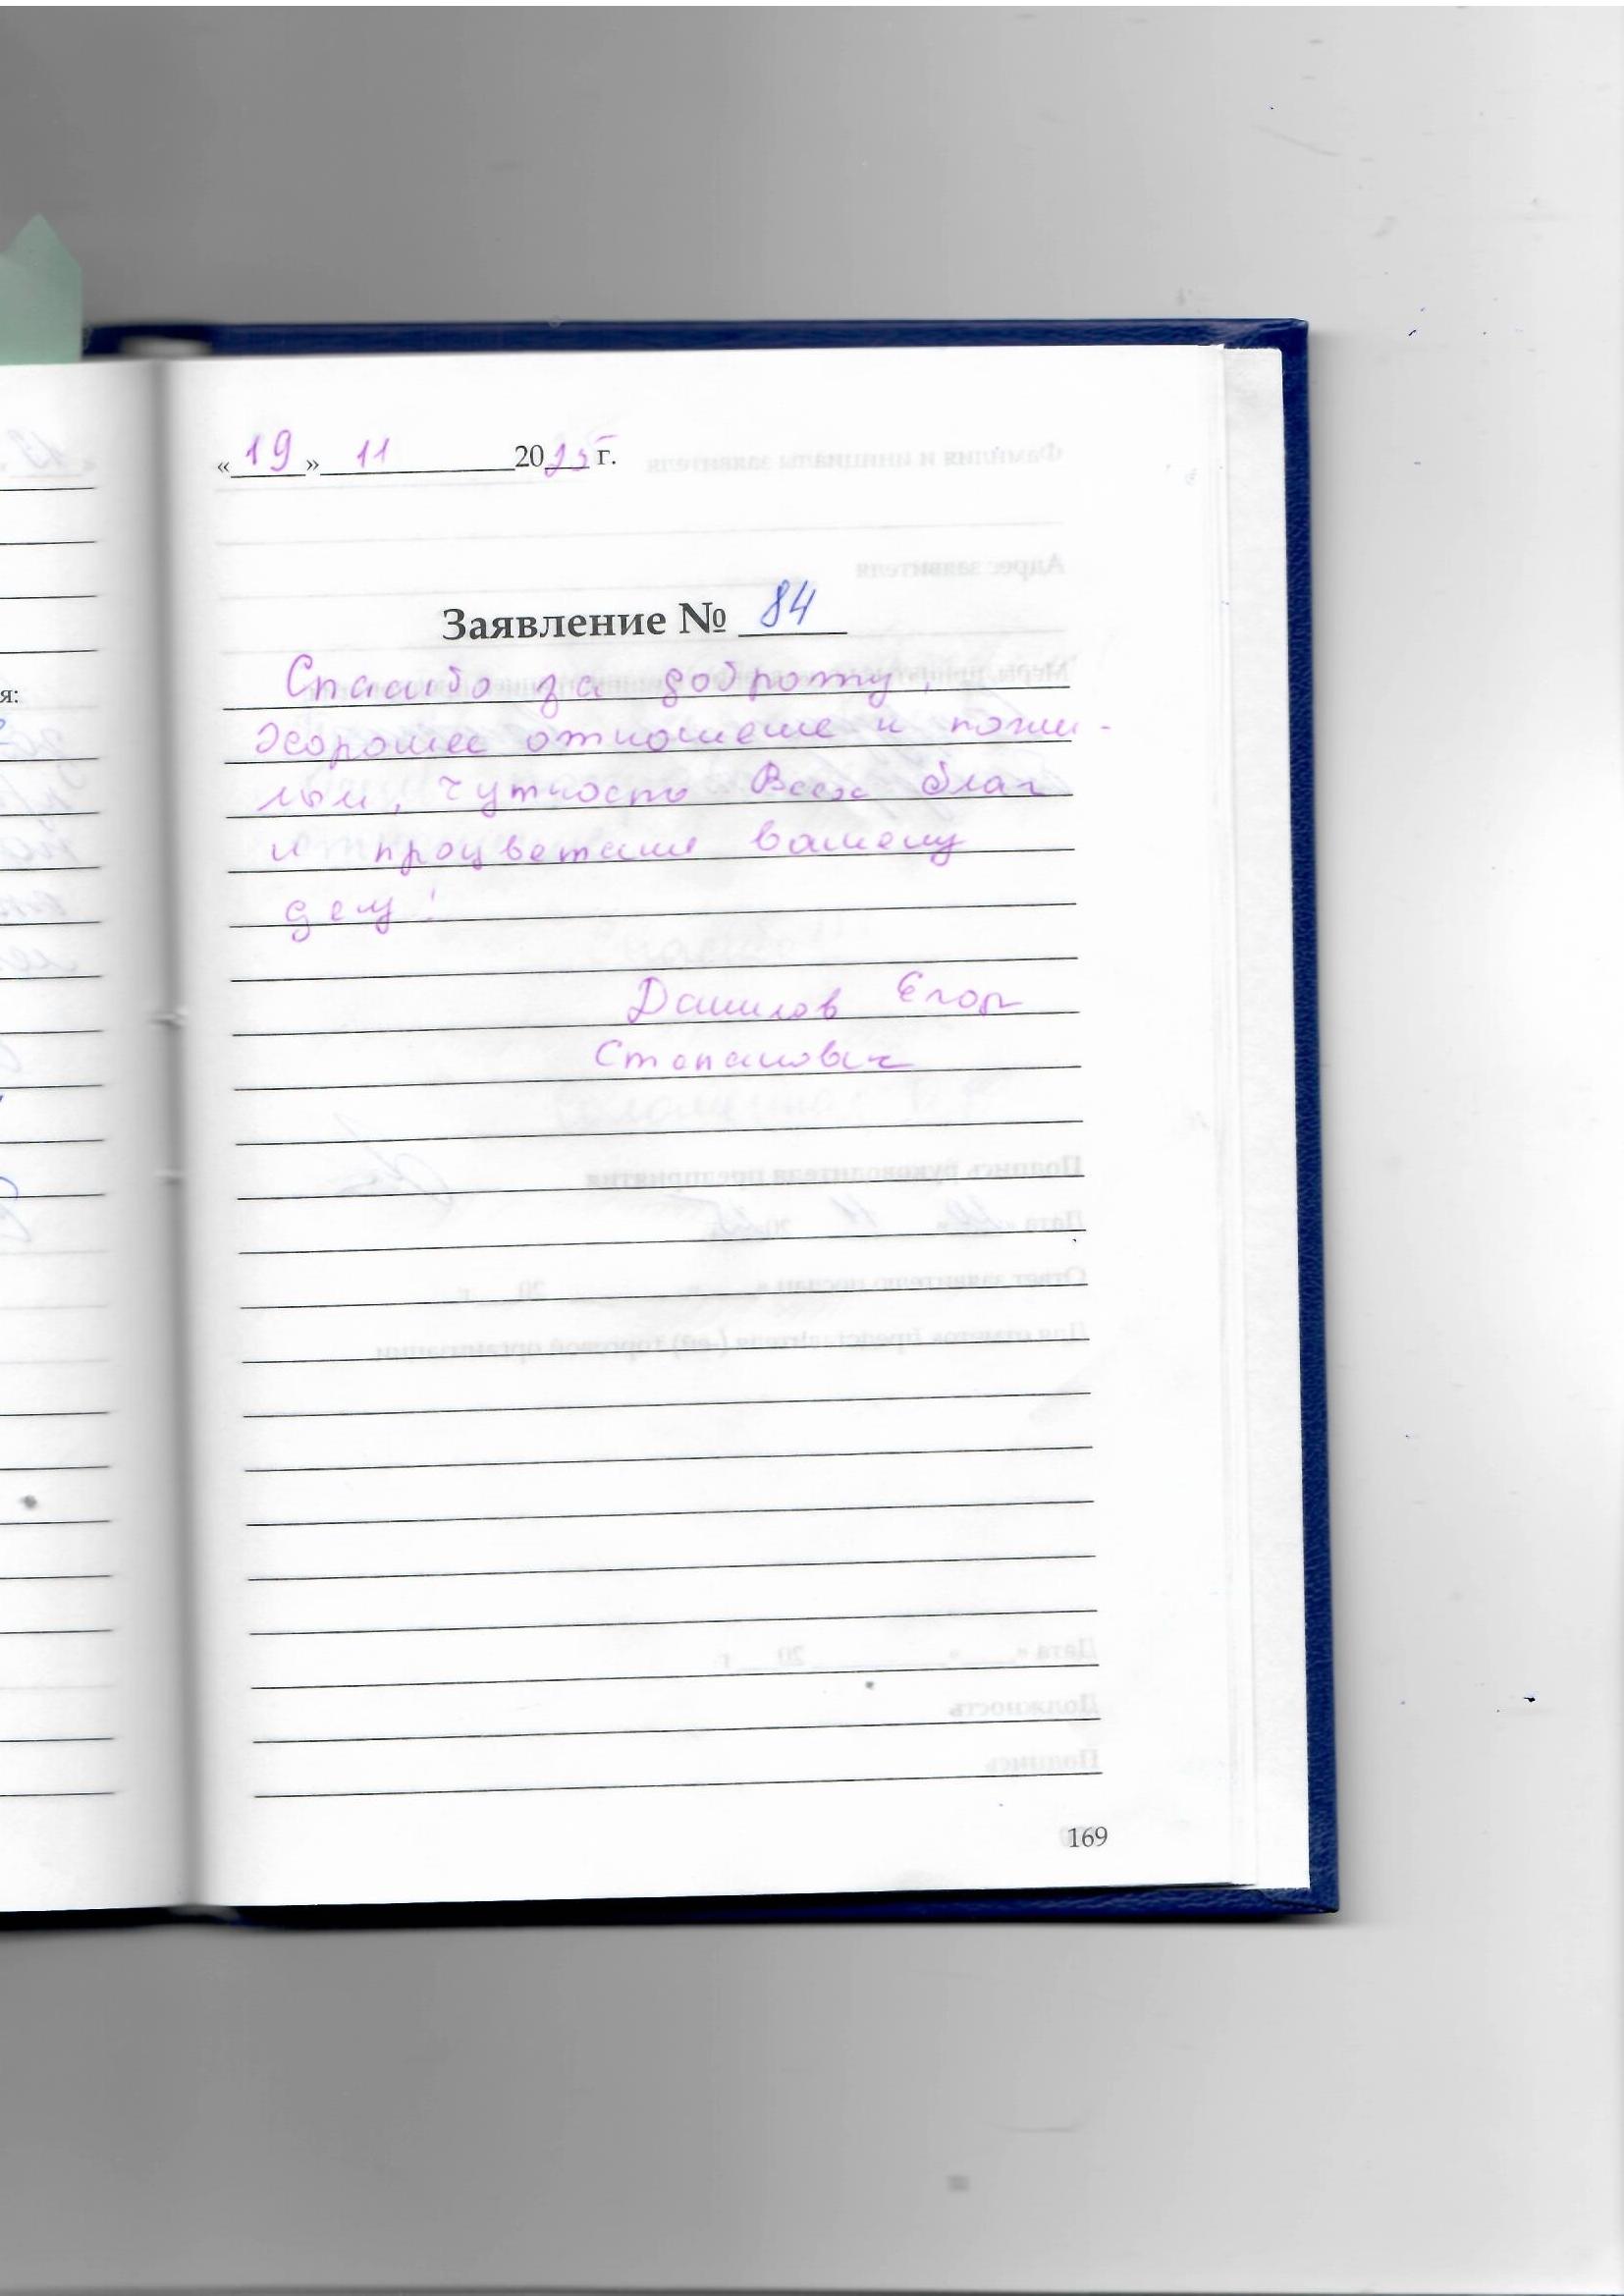 «19» 11 2025 г.
Заявление № 84
Спасибо за доброту,
хорошее отношение к пожи-
лым, чуткость Всех благ
и процветание вашему
делу!
Данилов Егор
Степанович
169
я: